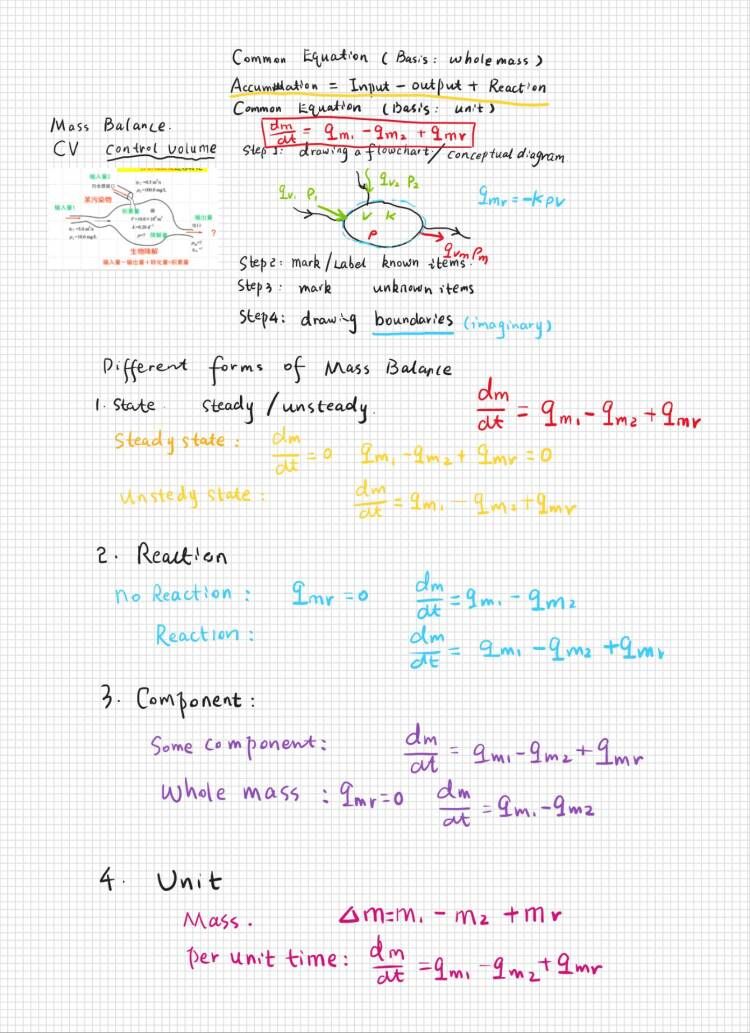 Common Equation (Basis: whole mass)
Accumulation = Input - output + Reaction
Common Equation (Basis: unit)
dm/dt = qm₁ - qm₂ + qmr
Mass Balance.
CV control volume
Step 1: drawing a flowchart/conceptual diagram
输入量2
某污染物
输入量1
积累量
输出量
降解量
?
生物降解
输入量-输出量+转化量=积累量
qv₁ ρ₁
qv₂ ρ₂
V K
ρ
qvm ρm
qmr = -kρv
Step2: mark/Label known items.
Step 3: mark unknown items
Step4: drawing boundaries (imaginary)
Different forms of Mass Balance
1. State. Steady/unsteady.
dm/dt = qm₁ - qm₂ + qmr
Steady state: dm/dt = 0 qm₁ - qm₂ + qmr = 0
Unstedy state: dm/dt = qm₁ - qm₂ + qmr
2. Reaction
no Reaction: qmr = 0 dm/dt = qm₁ - qm₂
Reaction: dm/dt = qm₁ - qm₂ + qmr
3. Component:
Some component: dm/dt = qm₁ - qm₂ + qmr
Whole mass: qmr = 0 dm/dt = qm₁ - qm₂
4. Unit
Mass. Δm = m₁ - m₂ + mr
per unit time: dm/dt = qm₁ - qm₂ + qmr